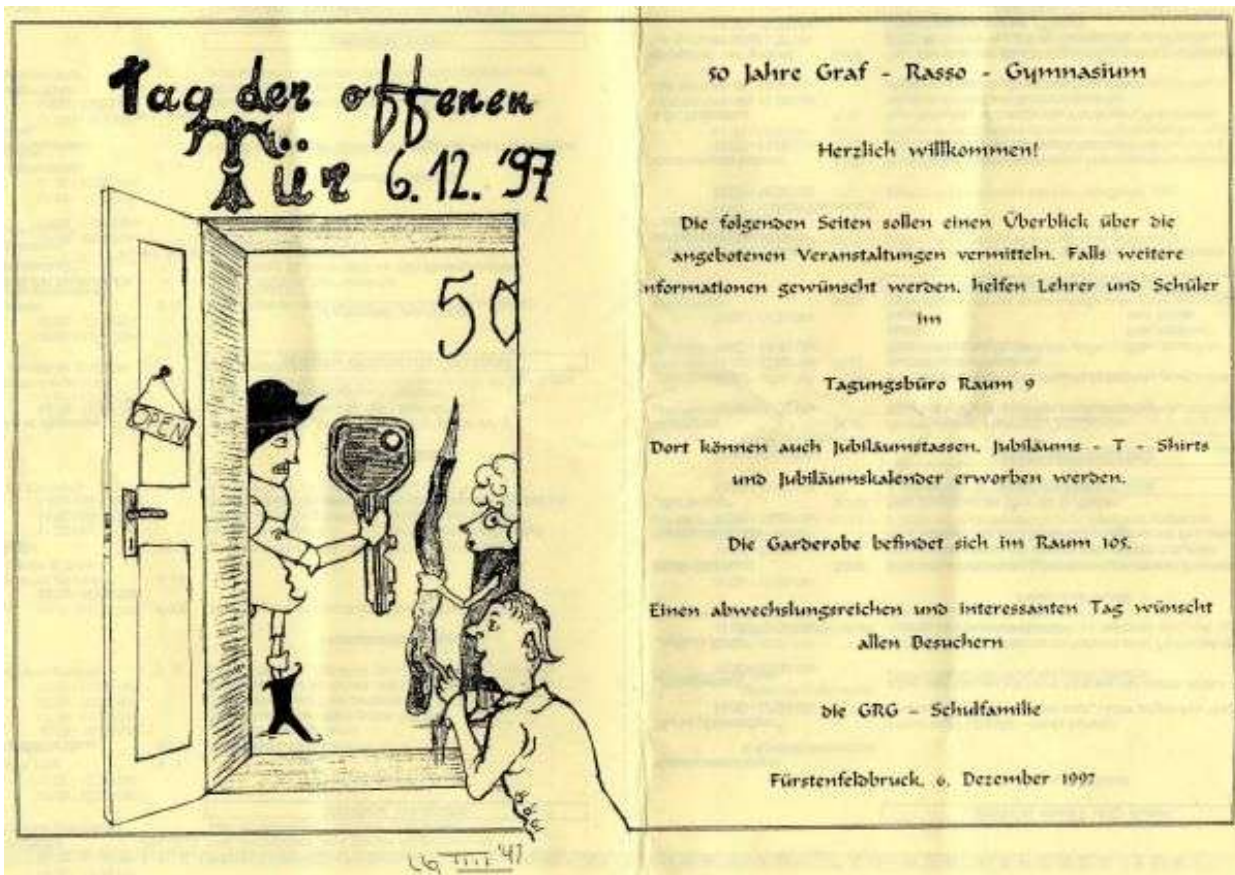 Tag der offenen
Tür 6.12.'97
50
OPEN
'97
50 Jahre Graf - Rasso - Gymnasium
Herzlich willkommen!
Die folgenden Seiten sollen einen Überblick über die
angebotenen Veranstaltungen vermitteln. Falls weitere
nformationen gewünscht werden, helfen Lehrer und Schüler
im
Tagungsbüro Raum 9
Dort können auch Jubiläumstassen, Jubiläums - T - Shirts
und Jubiläumskalender erworben werden.
Die Garderobe befindet sich im Raum 105.
Einen abwechslungsreichen und interessanten Tag wünscht
allen Besuchern
die GRG - Schulfamilie
Fürstenfeldbruck, 6. Dezember 1997